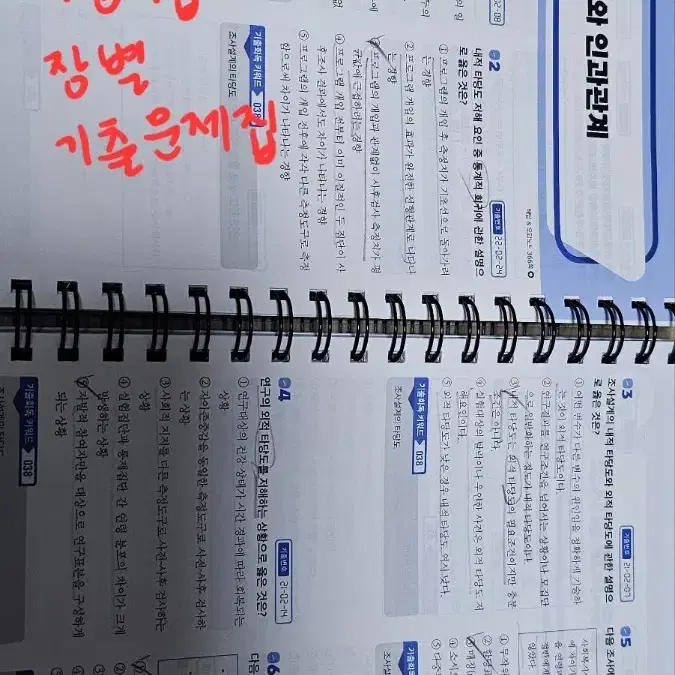 장별
기출문제집
와 인과관계
해설 & 오답노트 366쪽
02
기출번호 22-02-24
내적 타당도 저해 요인 중 통계적 회귀에 관한 설명으
로 옳은 것은?
① 프로그램의 개입 후 측정치가 기초선으로 돌아가려
는 경향
② 프로그램 개입의 효과가 완전한 선형관계로 나타나
는 경향
③ 프로그램의 개입과 관계없이 사후검사 측정치가 평
균값에 근접하려는 경향
④ 프로그램 개입 전부터 이미 이질적인 두 집단이 사
후조사 결과에서도 차이가 나타나는 경향
⑤ 프로그램의 개입 전후에 각각 다른 측정도구로 측정
함으로써 차이가 나타나는 경향
기출회독 키워드 038
조사설계의 타당도
03
기출번호 21-02-07
조사설계의 내적 타당도와 외적 타당도에 관한 설명으
로 옳은 것은?
① 어떤 변수가 다른 변수의 원인임을 정확하게 기술하
는 것이 외적 타당도이다.
② 연구결과를 연구조건을 넘어서는 상황이나 모집단
으로 일반화하는 정도가 내적 타당도이다.
③ 내적 타당도는 외적 타당도의 필요조건이지만 충분
조건은 아니다.
④ 실험대상의 탈락이나 우연한 사건은 외적 타당도 저
해요인이다.
⑤ 외적 타당도가 낮은 경우 내적 타당도 역시 낮다.
기출회독 키워드 038
조사설계의 타당도
04
기출번호 21-02-14
연구의 외적 타당도를 저해하는 상황으로 옳은 것은?
① 연구대상의 건강 상태가 시간 경과에 따라 회복되는
상황
② 자아존중감을 동일한 측정도구로 사전-사후 검사하
는 상황
③ 사회적 지지를 다른 측정도구로 사전-사후 검사하는
상황
④ 실험집단과 통제집단 간 연령 분포의 차이가 크게
발생하는 상황
⑤ 자발적 참여자만을 대상으로 연구표본을 구성하게
되는 상황
기출회독 키워드 038
조사설계의 타당도
05
다음 조사에
06
다음